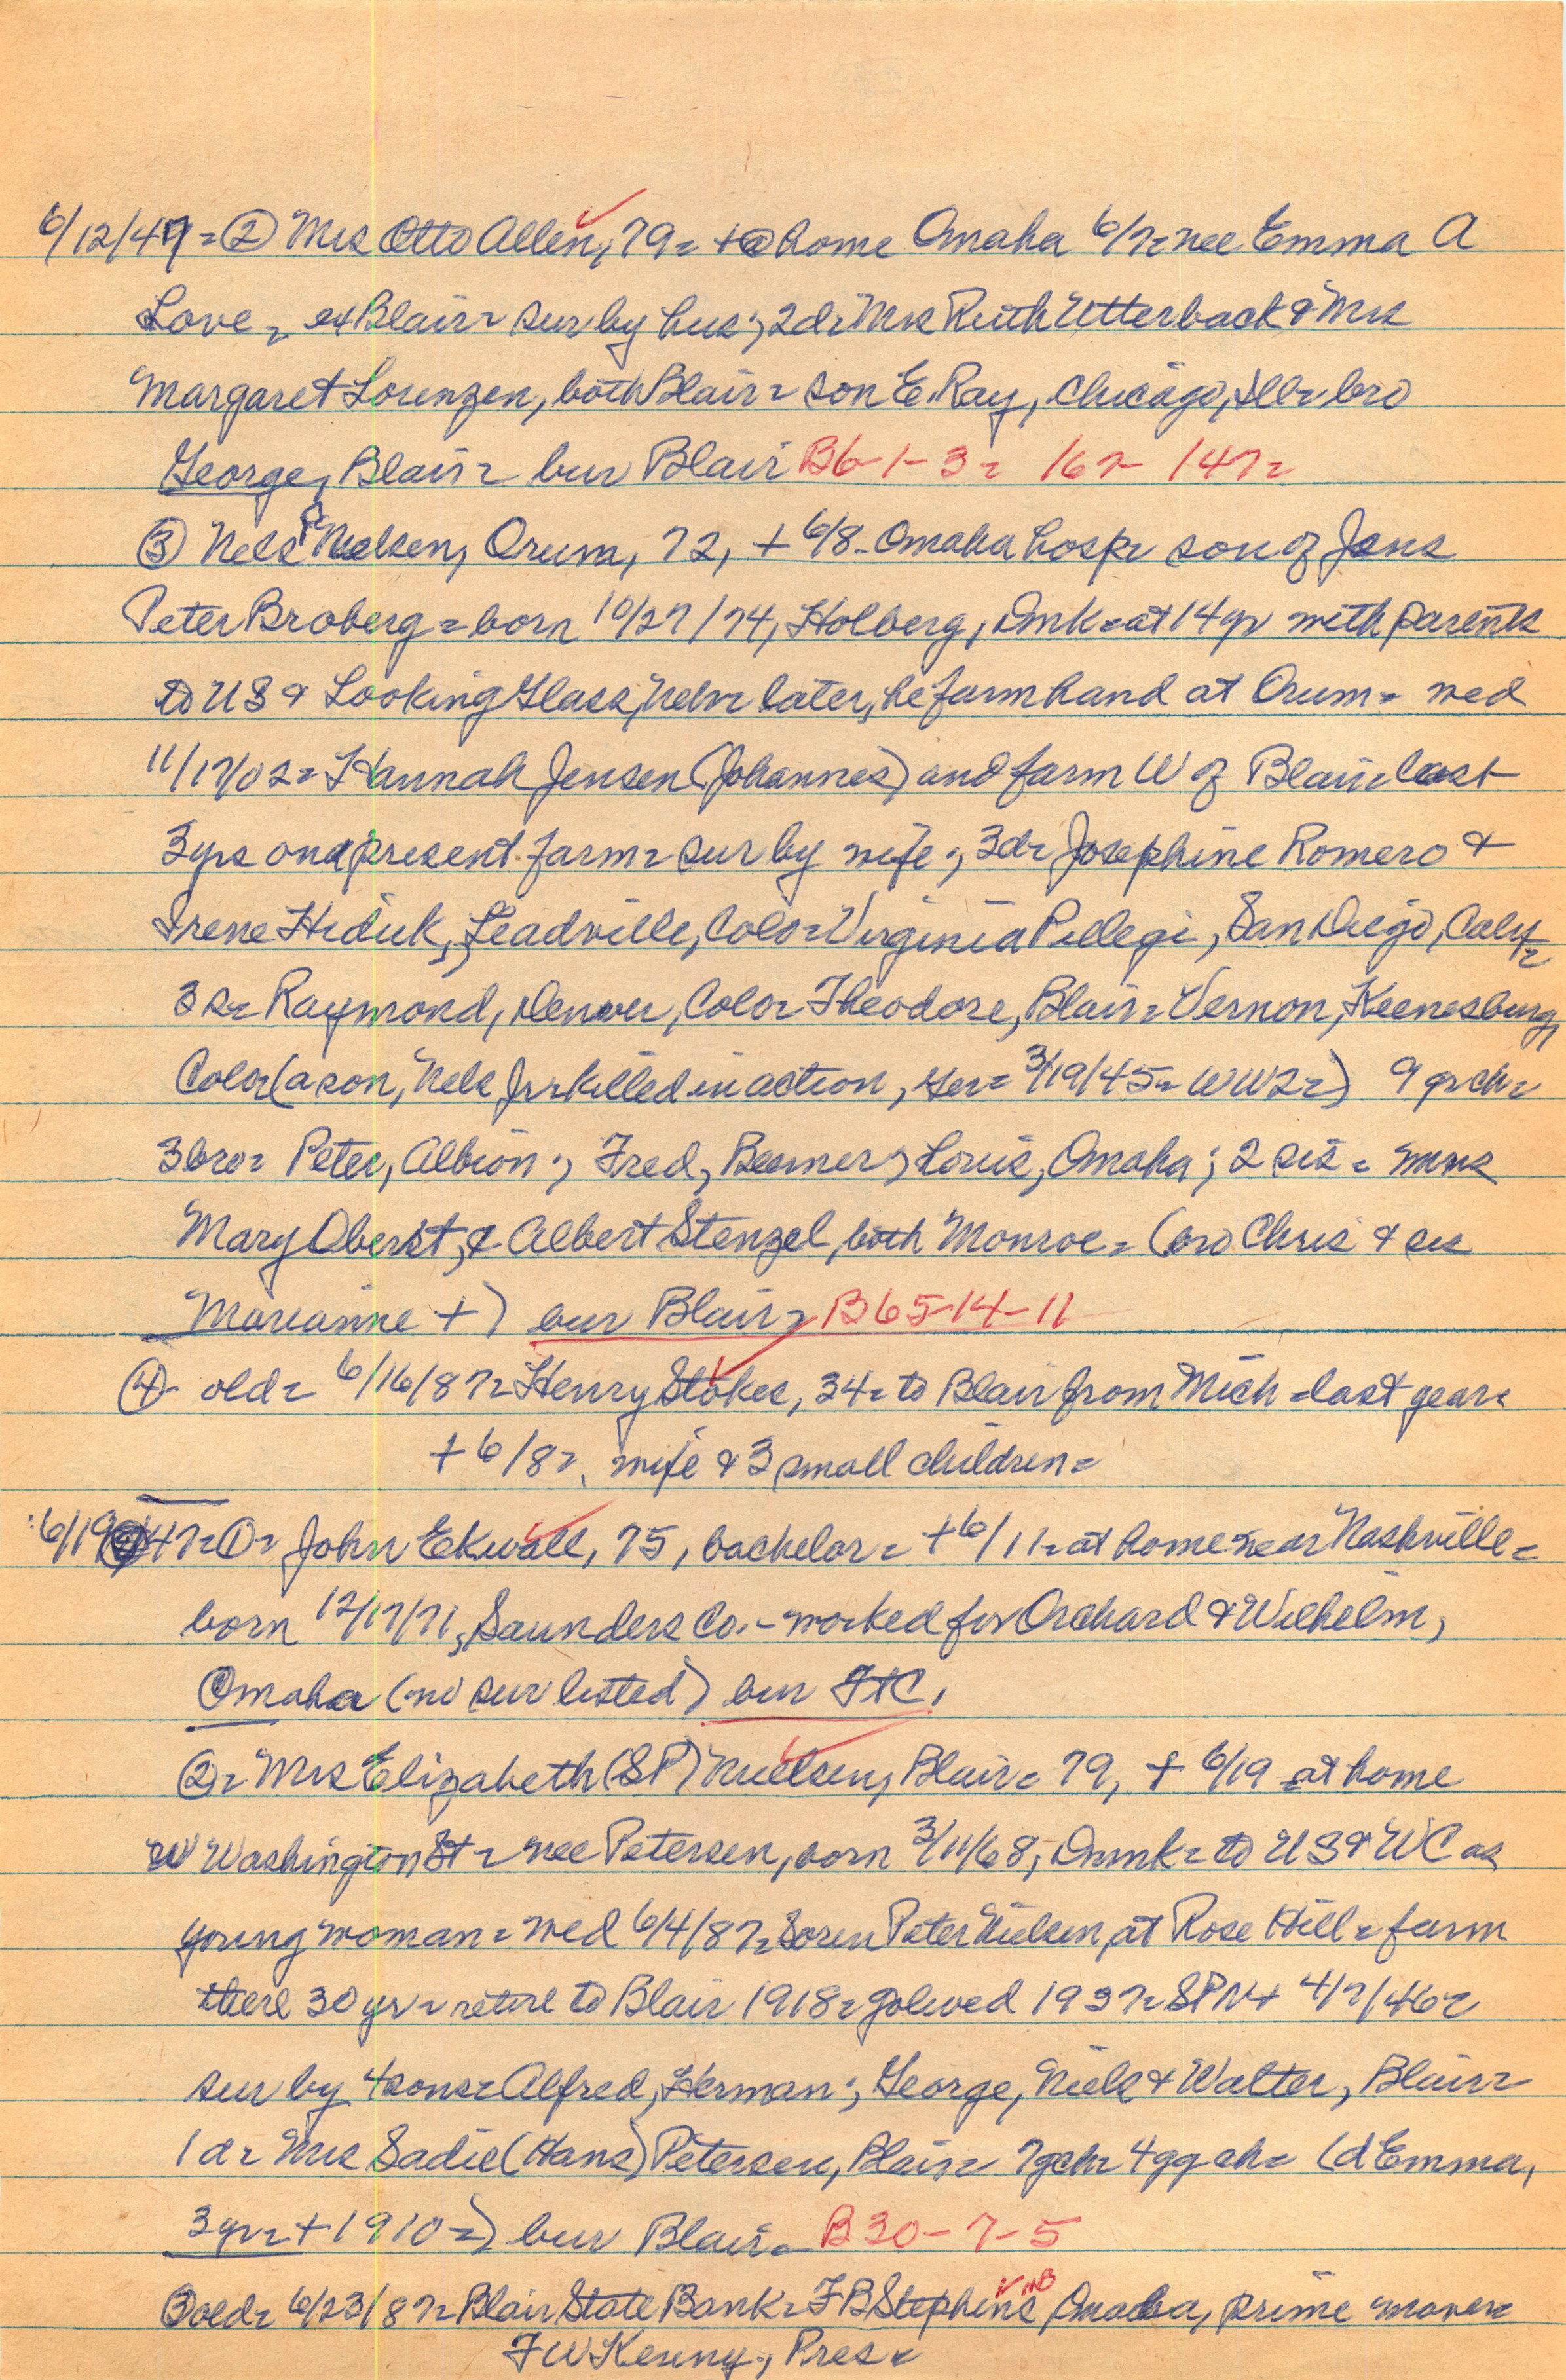 6/12/47 = ② Mrs Otto Allen, 79 = + @ home Omaha 6/7 = nee Emma A
Love, ex Blair = sur by hus; 2d = Mrs Ruth Utterback & Mrs
Margaret Lorenzen, both Blair = son E. Ray, Chicago, Ill = bro
George, Blair = bur Blair B6-1-3 = 167- 147 =
③ Nels P Nelsen, Orum, 72, + 6/8 - Omaha hosp = son of Jens
Peter Broberg = born 10/27/74, Holberg, Dmk = at 14 yr with parents
to US & Looking Glass, Nebr = later, he farm hand at Orum = wed
11/17/02 = Hannah Jensen (Johannes) and farm W of Blair = last
3 yrs on present farm = sur by wife; 3d = Josephine Romero &
Irene Hiduk, Leadville, Colo = Virginia Pellegi, San Diego, Calif =
3 s = Raymond, Denver, Colo = Theodore, Blair = Vernon, Keenesburg,
Colo = (a son, Nels Jr = killed in action, Ger = 3/19/45 = WW2 =) 9 grch =
3 bro = Peter, Albion; Fred, Beemer; Louis, Omaha; 2 sis = mms
Mary Oberst, & Albert Stenzel, both Monroe = (bro Chris & sis
Marianne +) bur Blair = B65-14-11
④ old = 6/16/87 = Henry Stokes, 34 = to Blair from Mich = last year =
+ 6/8 = wife & 3 small children =
6/19/47 = ① = John Ekwall, 75, bachelor = + 6/11 = at home near Nashville =
born 12/17/71, Saunders Co. - worked for Orchard & Wilhelm,
Omaha (no sur listed) bur FtC,
② = Mrs Elizabeth (SP) Nielsen, Blair = 79, + 6/19 at home
W Washington St = nee Petersen, born 3/11/68, Dnmk = to US & WC as
young woman = wed 6/4/87 = Soren Peter Nielsen, at Rose Hill = farm
there 30 yr = retire to Blair 1918 = golwed 1937 = SPN + 4/7/46 =
sur by 4 sons = Alfred, Herman; George, Niels & Walter, Blair =
1 d = Mrs Sadie (Hans) Petersen, Blair = 7 gch = 4 ggch = (d Emma,
3 yr = + 1910 =) bur Blair = B30-7-5
③ old = 6/23/87 = Blair State Bank = F B Stephens, Omaha, prime mover =
F W Kenny, Pres =